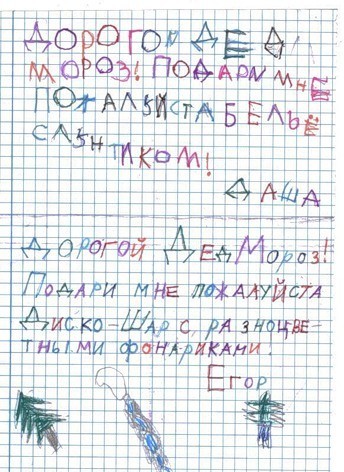 ДОРОГОЙ ДЕД
МОРОЗ! ПОДАРИ МНЕ
ПОЖАЛУЙСТА БЕЛЬЁ
С БАНТИКОМ!
ДАША
ДОРОГОЙ ДЕД МОРОЗ!
ПОДАРИ МНЕ ПОЖАЛУЙСТА
ДИСКО-ШАР С РАЗНОЦВЕ-
ТНЫМИ ФОНАРИКАМИ.
ЕГОР